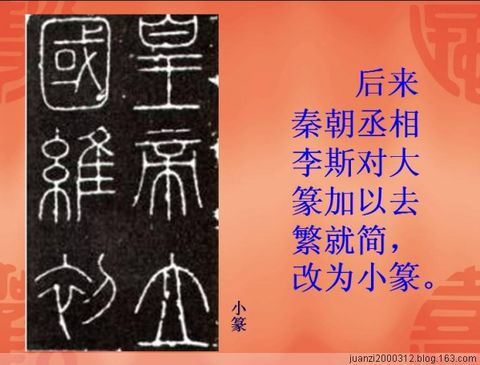 皇帝立
國維初
小篆
后来
秦朝丞相
李斯对大
篆加以去
繁就简，
改为小篆。
juanzi2000312.blog.163.com